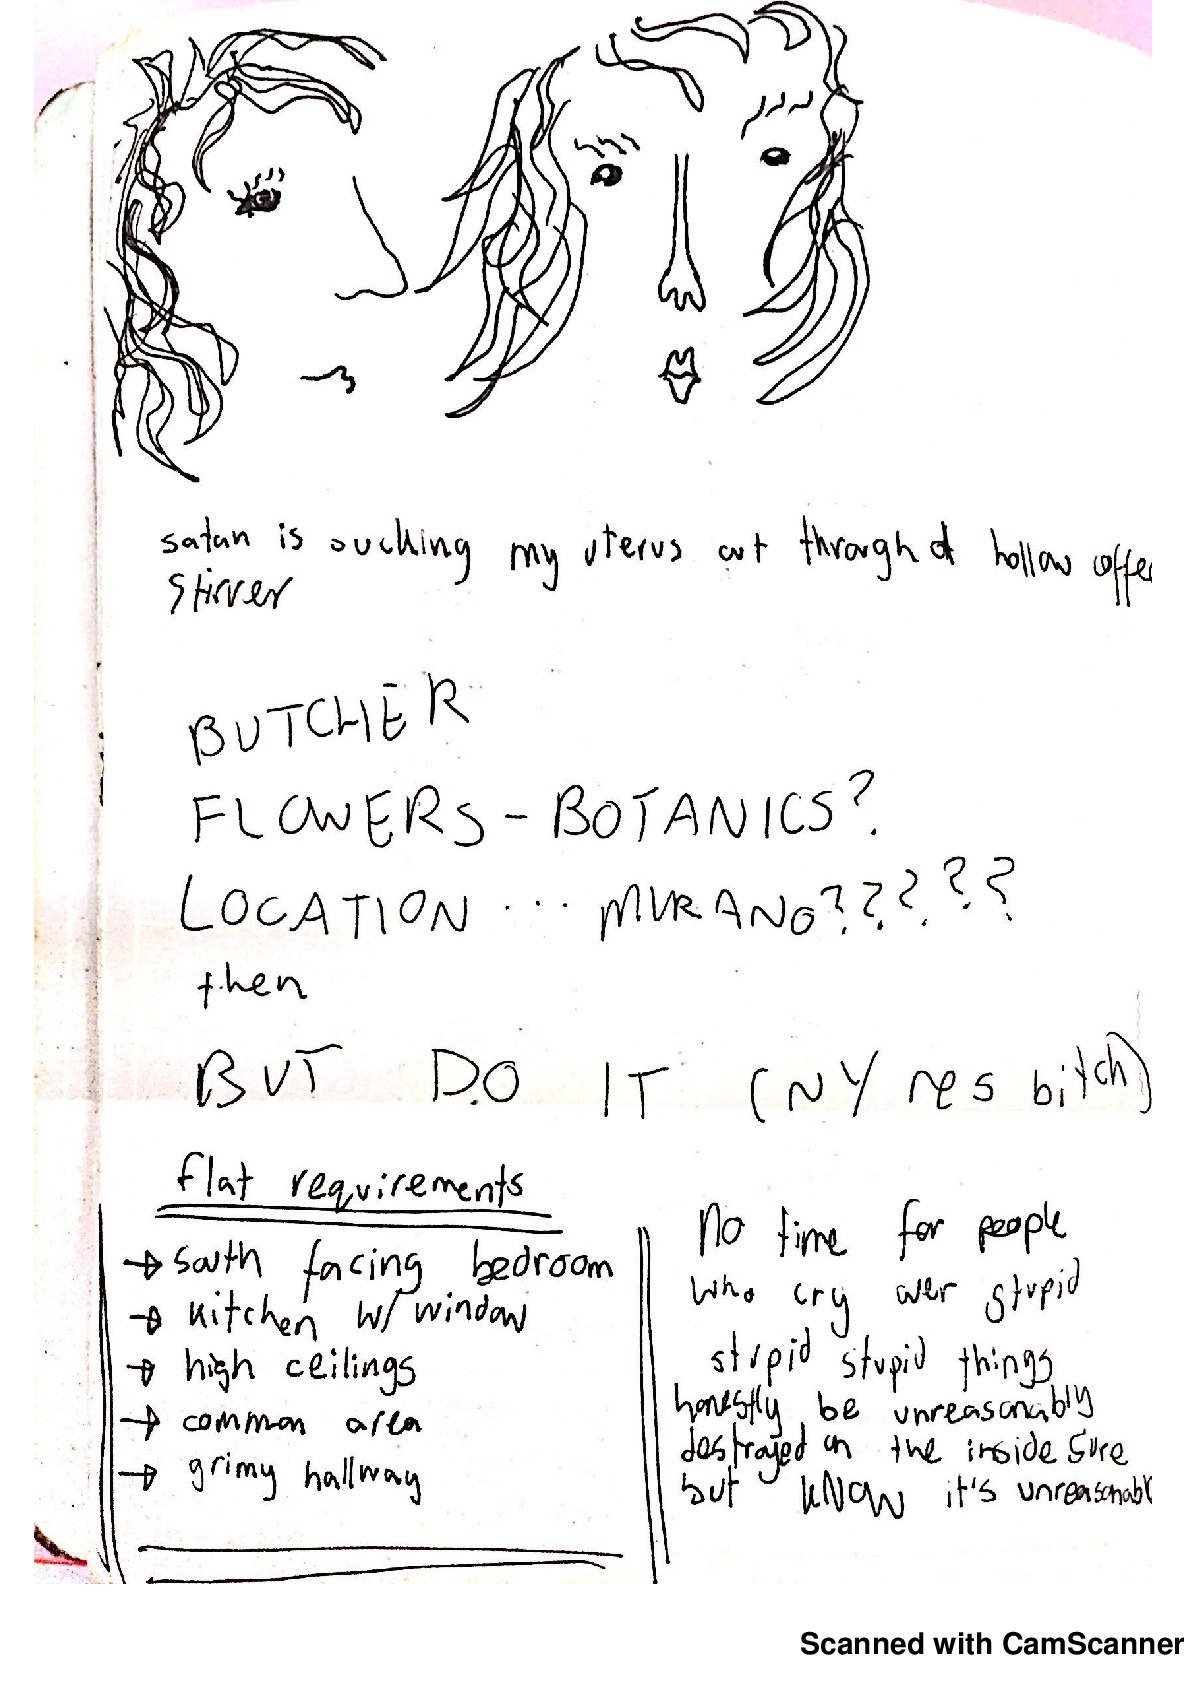 satan is sucking my uterus out through a hollow coffee
stirrer
BUTCHER
FLOWERS - BOTANICS?
LOCATION ... MURANO?????
then
BUT DO IT (NY res bitch)
flat requirements
→ south facing bedroom
→ kitchen w/ window
→ high ceilings
→ common area
→ grimy hallway
No time for people
who cry over stupid
stupid stupid things
honestly be unreasonably
destroyed on the inside sure
but KNOW it's unreasonabl
Scanned with CamScanner